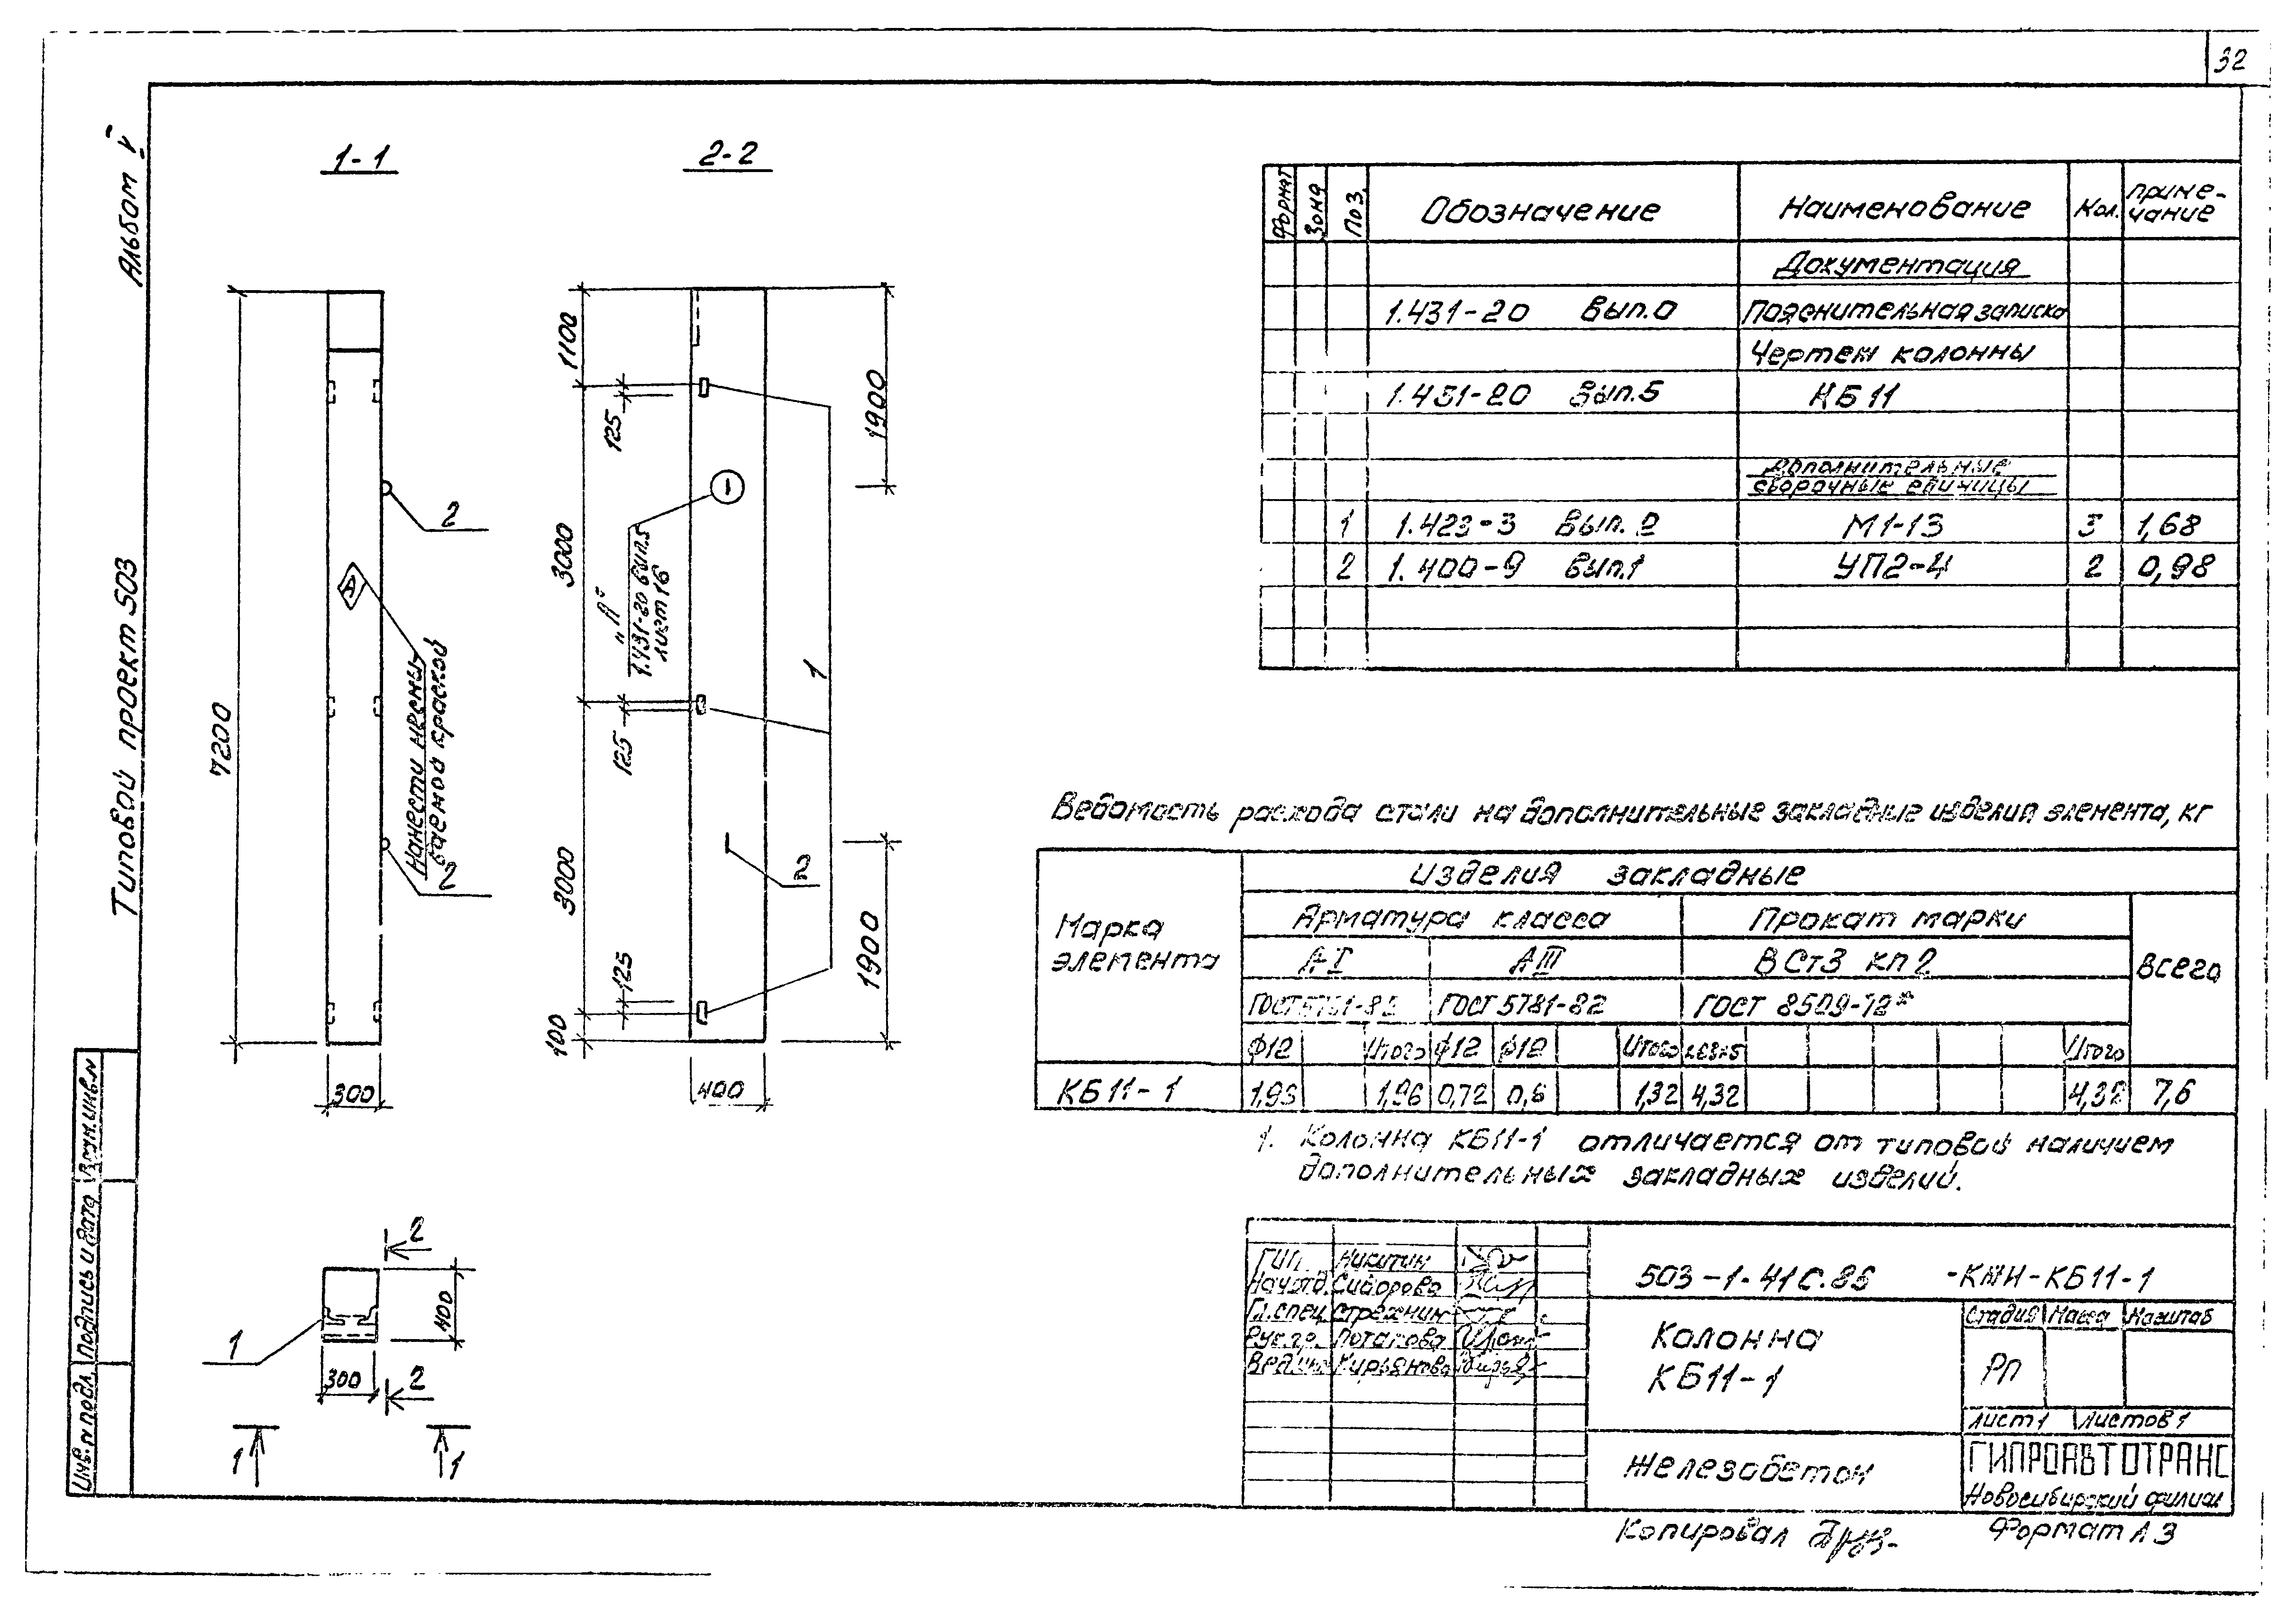 32
Альбом V
Типовой проект 503
1-1
2-2
7200
300
2
2
А
Нанести несмы-
ваемой краской
1100
125
3000
125
3000
125
100
1900
1900
400
1
1
2
„А"
1.431-20 вып.5
лист 16
2
400
1
300
2
1
1
Формат Зона Поз. Обозначение Наименование Кол. Приме-
чание
Документация
1.431-20 Вып.0 Пояснительная записка
Чертеж колонны
1.431-20 Вып.5 КБ11
Дополнительные
сборочные единицы
1 1.423-3 Вып. 2 М1-13 3 1,68
2 1.400-9 Вып.1 УП2-4 2 0,98
Ведомость расхода стали на дополнительные закладные изделия элемента, кг
Марка
элемента
Изделия закладные
Арматура класса Прокат марки
АI АIII ВСт3 кп2 Всего
ГОСТ 5781-82 ГОСТ 5781-82 ГОСТ 8509-72*
Ф12 Итого Ф12 Итого Итого
КБ11-1 1,96 1,96 0,72 0,6 1,32 4,32 4,32 7,6
1. Колонна КБ11-1 отличается от типовой наличием
дополнительных закладных изделий.
ГИП Никитин
Нач.отд. Сидорова
Гл.спец. Стрехнин
Рук.гр. Потапова
Вед.инж. Кирьянова
503-1-41С.86 -КЖИ-КБ11-1
Колонна
КБ11-1
Стадия Масса Масштаб
РП
Лист 1 Листов 1
Железобетон
ГИПРОАВТОТРАНС
Новосибирский филиал
Копировал
Формат А3
Инв.№подл. Подпись и дата Взам.инв.№